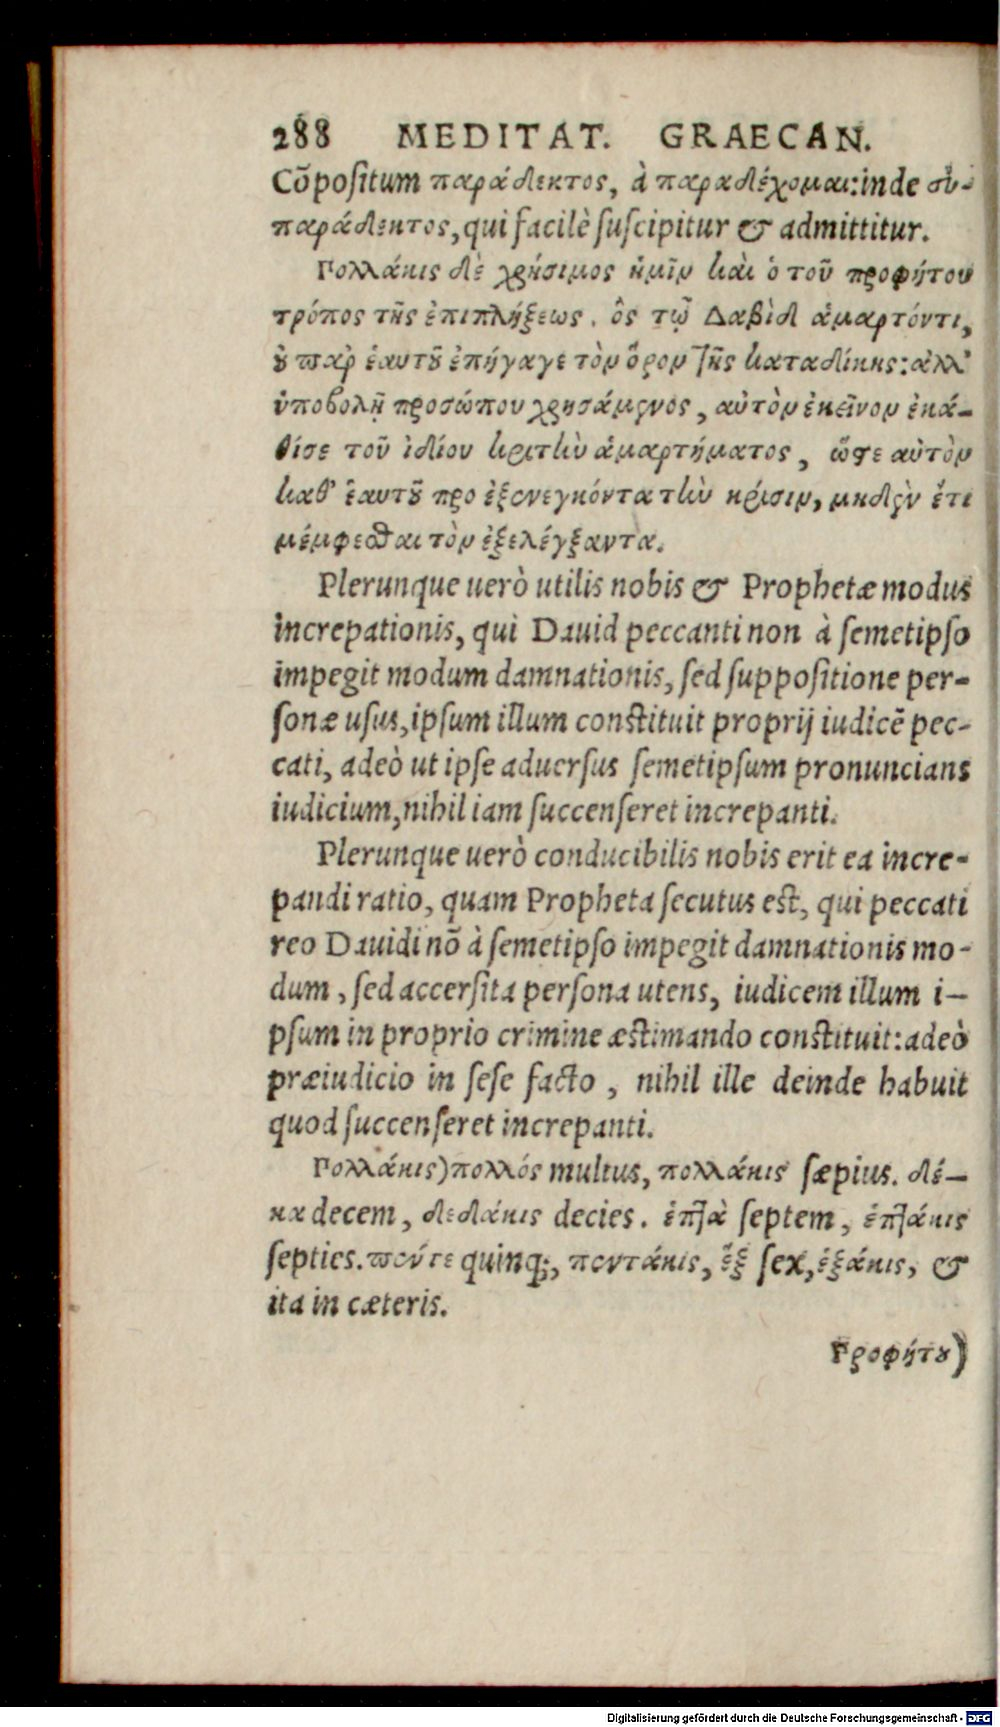 288 MEDITAT. GRAECAN.
Cōpoſitum παράδεκτος, à παραδέχομαι: inde εὐ-
παράδεκτος, qui facilè ſuſcipitur & admittitur.
Πολλάκις δὲ χρήσιμος ἡμῖν καὶ ὁ τοῦ προφήτου
τρόπος τῆς ἐπιπλήξεως. ὃς τῷ Δαβὶδ ἁμαρτόντι,
ȣ̓ παρ ἑαυτȣ͂ ἐπήγαγε τὸν ὅρον τῆς καταδίκης: ἀλλ'
ὑποβολῇ προσώπου χρησάμενος, αὐτὸν ἐκεῖνον ἐκά-
θισε τοῦ ἰδίου κριτὴν ἁμαρτήματος, ὥστε αὐτὸν
καθ' ἑαυτȣ͂ προ ἐξενεγκόντα τὴν κρίσιν, μηδὲν ἔτι
μέμφεσθαι τὸν ἐξελέγξαντα.
Plerunque uerò utilis nobis & Prophetæ modus
increpationis, qui Dauid peccanti non à ſemetipſo
impegit modum damnationis, ſed ſuppoſitione per-
ſonæ uſus, ipſum illum conſtituit proprij iudicē pec-
cati, adeò ut ipſe aduerſus ſemetipſum pronuncians
iudicium, nihil iam ſuccenſeret increpanti.
Plerunque uerò conducibilis nobis erit ea incre-
pandi ratio, quam Propheta ſecutus eſt, qui peccati
reo Dauidi nō à ſemetipſo impegit damnationis mo-
dum, ſed accerſita perſona utens, iudicem illum i-
pſum in proprio crimine æſtimando conſtituit: adeò
præiudicio in ſeſe facto, nihil ille deinde habuit
quod ſuccenſeret increpanti.
Πολλάκις) πολλός multus, πολλάκις ſæpius. δέ-
κα decem, δεκάκις decies. ἑπτὰ ſeptem, ἑπτάκις
ſepties. πέντε quinq;, πεντάκις, ἕξ ſex, ἑξάκις, &
ita in cæteris.
Προφήτȣ)
Digitalisierung gefördert durch die Deutsche Forschungsgemeinschaft - DFG